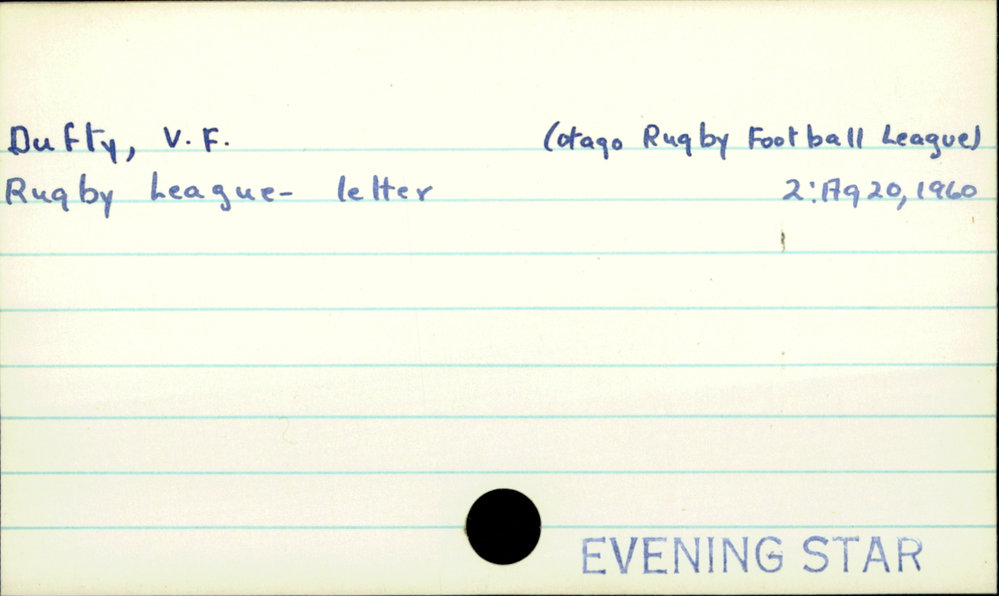 Dufty, V. F. (Otago Rugby Football League)
Rugby League - letter 2: Ag 20, 1960
EVENING STAR